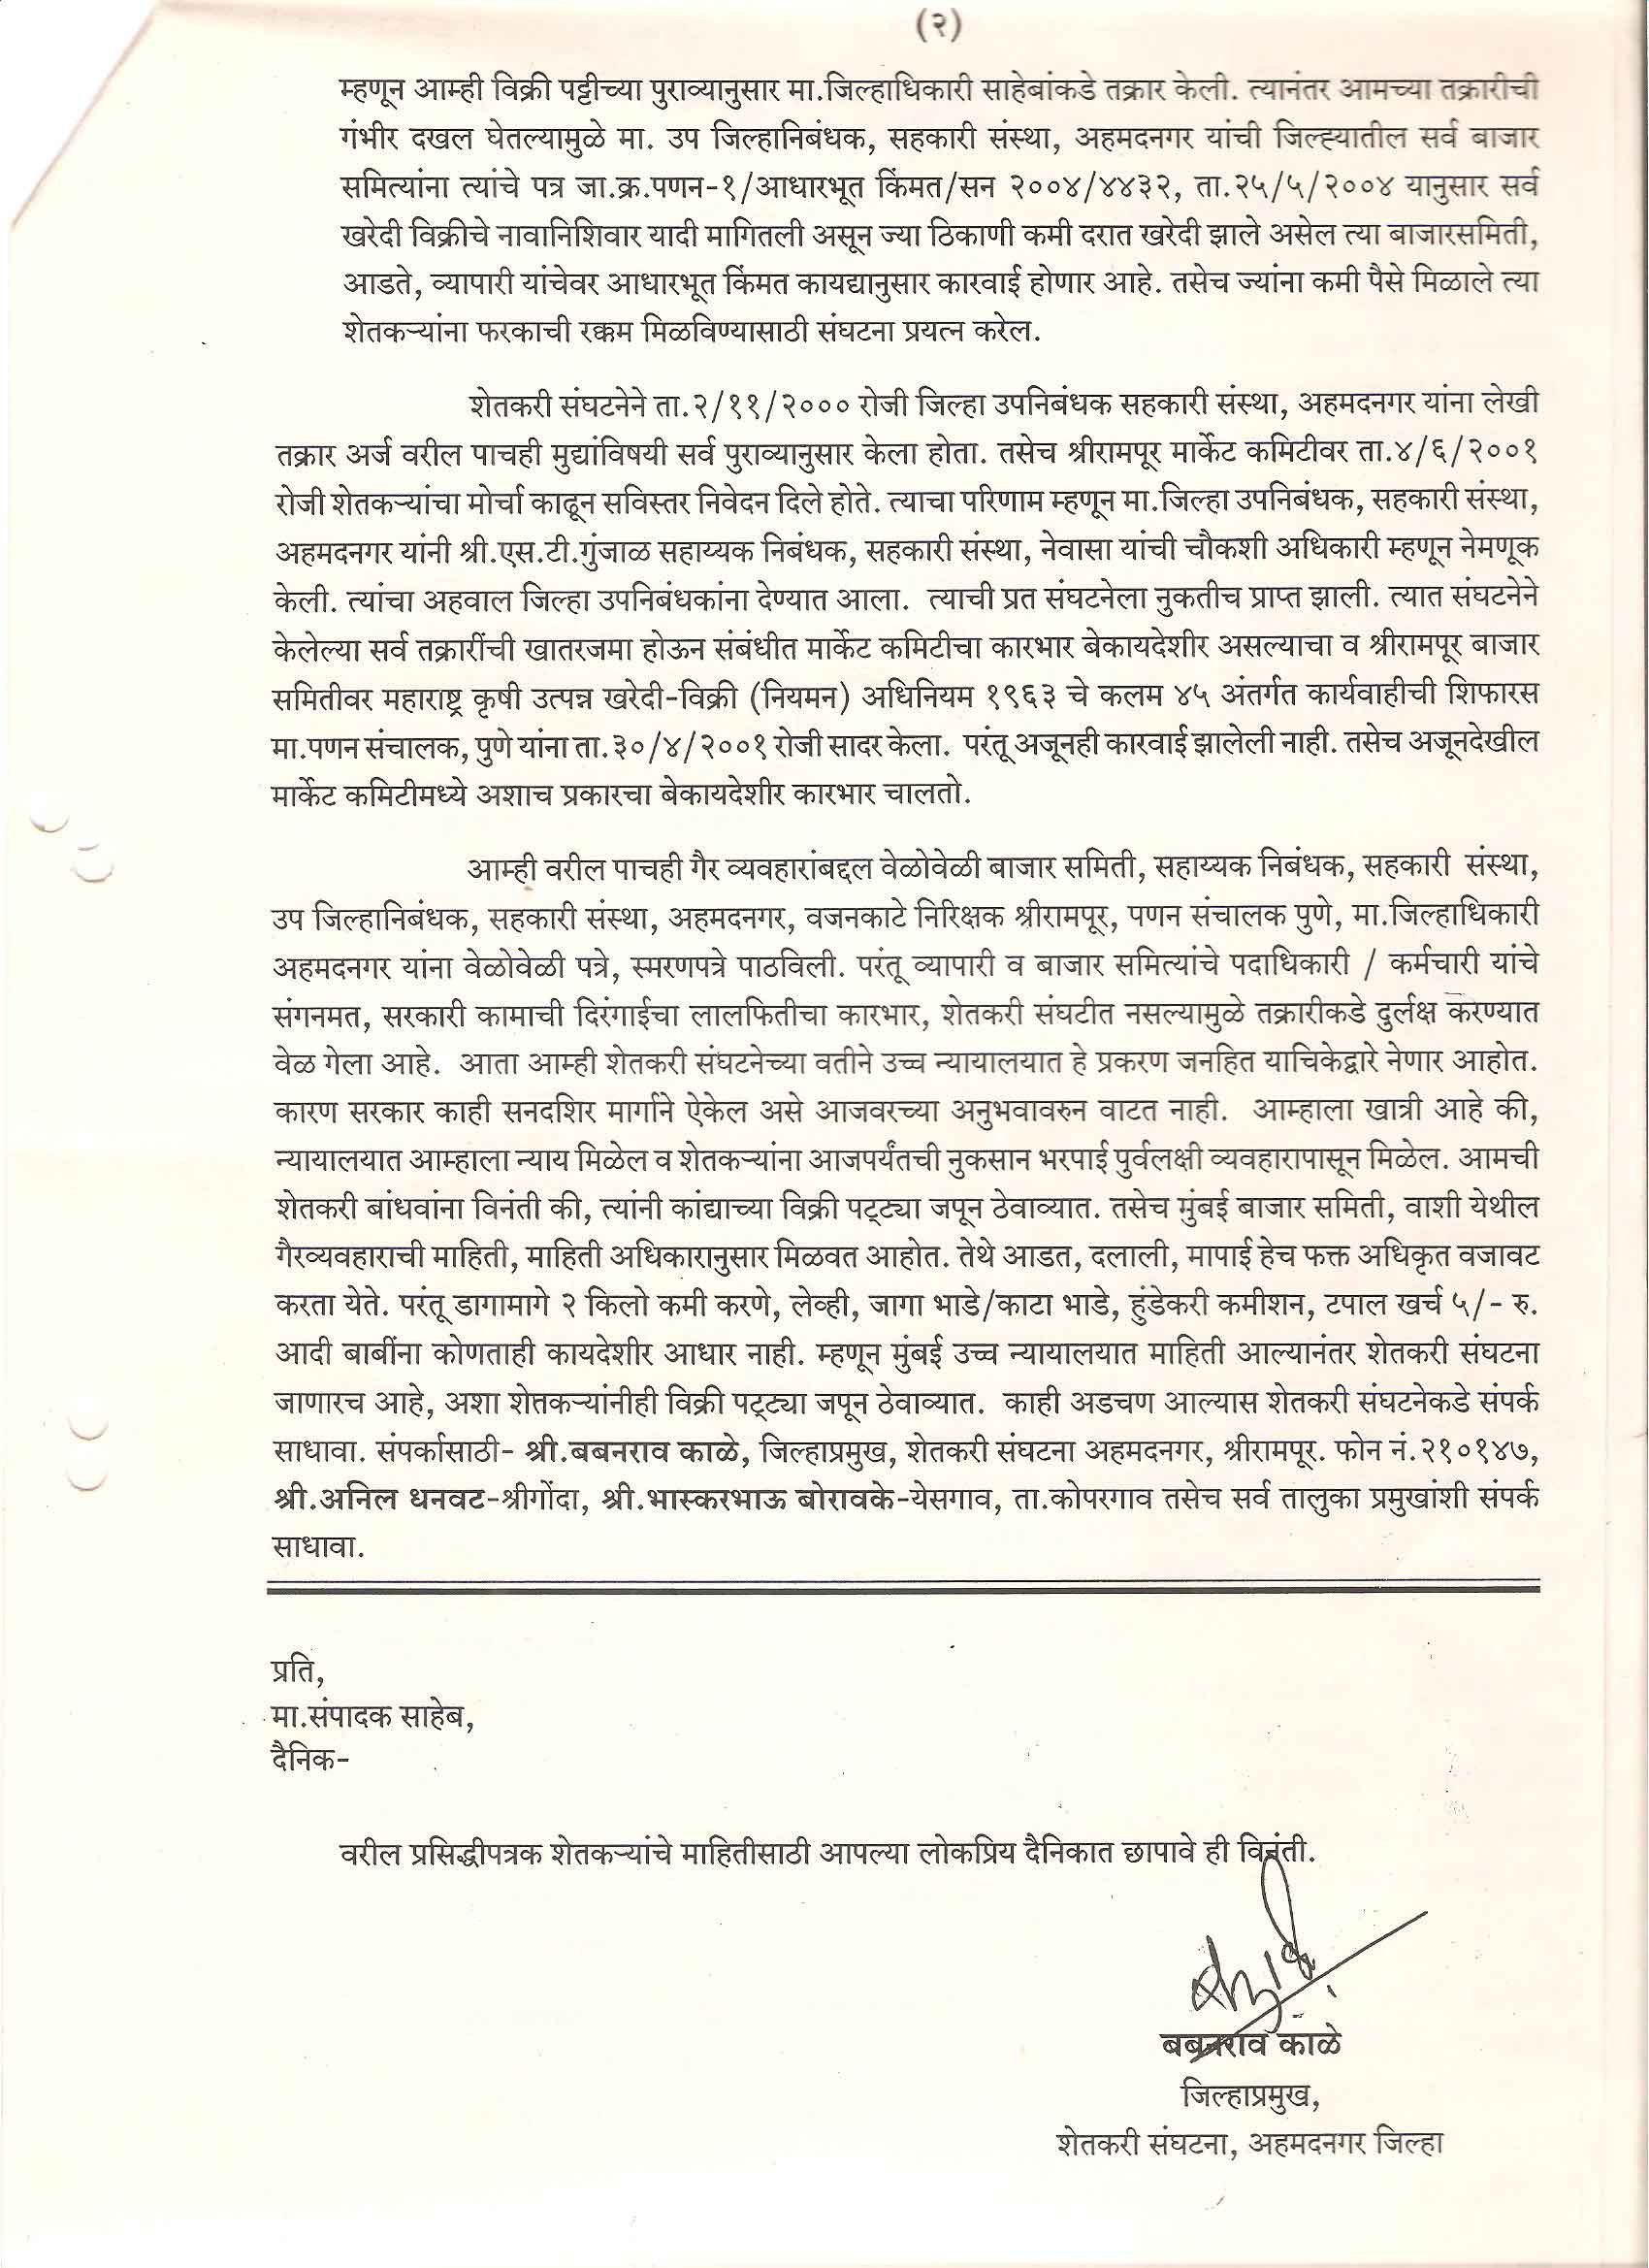 (२)
म्हणून आम्ही विक्री पट्टीच्या पुराव्यानुसार मा.जिल्हाधिकारी साहेबांकडे तक्रार केली. त्यानंतर आमच्या तक्रारीची
गंभीर दखल घेतल्यामुळे मा. उप जिल्हानिबंधक, सहकारी संस्था, अहमदनगर यांची जिल्ह्यातील सर्व बाजार
समित्यांना त्यांचे पत्र जा.क्र.पणन-१/आधारभूत किंमत/सन २००४/४४३२, ता.२५/५/२००४ यानुसार सर्व
खरेदी विक्रीचे नावानिशिवार यादी मागितली असून ज्या ठिकाणी कमी दरात खरेदी झाले असेल त्या बाजारसमिती,
आडते, व्यापारी यांचेवर आधारभूत किंमत कायद्यानुसार कारवाई होणार आहे. तसेच ज्यांना कमी पैसे मिळाले त्या
शेतकऱ्यांना फरकाची रक्कम मिळविण्यासाठी संघटना प्रयत्न करेल.
शेतकरी संघटनेने ता.२/११/२००० रोजी जिल्हा उपनिबंधक सहकारी संस्था, अहमदनगर यांना लेखी
तक्रार अर्ज वरील पाचही मुद्यांविषयी सर्व पुराव्यानुसार केला होता. तसेच श्रीरामपूर मार्केट कमिटीवर ता.४/६/२००१
रोजी शेतकऱ्यांचा मोर्चा काढून सविस्तर निवेदन दिले होते. त्याचा परिणाम म्हणून मा.जिल्हा उपनिबंधक, सहकारी संस्था,
अहमदनगर यांनी श्री.एस.टी.गुंजाळ सहाय्यक निबंधक, सहकारी संस्था, नेवासा यांची चौकशी अधिकारी म्हणून नेमणूक
केली. त्यांचा अहवाल जिल्हा उपनिबंधकांना देण्यात आला. त्याची प्रत संघटनेला नुकतीच प्राप्त झाली. त्यात संघटनेने
केलेल्या सर्व तक्रारींची खातरजमा होऊन संबंधीत मार्केट कमिटीचा कारभार बेकायदेशीर असल्याचा व श्रीरामपूर बाजार
समितीवर महाराष्ट्र कृषी उत्पन्न खरेदी-विक्री (नियमन) अधिनियम १९६३ चे कलम ४५ अंतर्गत कार्यवाहीची शिफारस
मा.पणन संचालक, पुणे यांना ता.३०/४/२००१ रोजी सादर केला. परंतू अजूनही कारवाई झालेली नाही. तसेच अजूनदेखील
मार्केट कमिटीमध्ये अशाच प्रकारचा बेकायदेशीर कारभार चालतो.
आम्ही वरील पाचही गैर व्यवहारांबद्दल वेळोवेळी बाजार समिती, सहाय्यक निबंधक, सहकारी संस्था,
उप जिल्हानिबंधक, सहकारी संस्था, अहमदनगर, वजनकाटे निरिक्षक श्रीरामपूर, पणन संचालक पुणे, मा.जिल्हाधिकारी
अहमदनगर यांना वेळोवेळी पत्रे, स्मरणपत्रे पाठविली. परंतू व्यापारी व बाजार समित्यांचे पदाधिकारी / कर्मचारी यांचे
संगनमत, सरकारी कामाची दिरंगाईचा लालफितीचा कारभार, शेतकरी संघटीत नसल्यामुळे तक्रारीकडे दुर्लक्ष करण्यात
वेळ गेला आहे. आता आम्ही शेतकरी संघटनेच्या वतीने उच्च न्यायालयात हे प्रकरण जनहित याचिकेद्वारे नेणार आहोत.
कारण सरकार काही सनदशिर मार्गाने ऐकेल असे आजवरच्या अनुभवावरुन वाटत नाही. आम्हाला खात्री आहे की,
न्यायालयात आम्हाला न्याय मिळेल व शेतकऱ्यांना आजपर्यंतची नुकसान भरपाई पुर्वलक्षी व्यवहारापासून मिळेल. आमची
शेतकरी बांधवांना विनंती की, त्यांनी कांद्याच्या विक्री पट्ट्या जपून ठेवाव्यात. तसेच मुंबई बाजार समिती, वाशी येथील
गैरव्यवहाराची माहिती, माहिती अधिकारानुसार मिळवत आहोत. तेथे आडत, दलाली, मापाई हेच फक्त अधिकृत वजावट
करता येते. परंतू डागामागे २ किलो कमी करणे, लेव्ही, जागा भाडे/काटा भाडे, हुंडेकरी कमीशन, टपाल खर्च ५/- रु.
आदी बाबींना कोणताही कायदेशीर आधार नाही. म्हणून मुंबई उच्च न्यायालयात माहिती आल्यानंतर शेतकरी संघटना
जाणारच आहे, अशा शेतकऱ्यांनीही विक्री पट्ट्या जपून ठेवाव्यात. काही अडचण आल्यास शेतकरी संघटनेकडे संपर्क
साधावा. संपर्कासाठी- श्री.बबनराव काळे, जिल्हाप्रमुख, शेतकरी संघटना अहमदनगर, श्रीरामपूर. फोन नं.२१०१४७,
श्री.अनिल धनवट-श्रीगोंदा, श्री.भास्करभाऊ बोरावके-येसगाव, ता.कोपरगाव तसेच सर्व तालुका प्रमुखांशी संपर्क
साधावा.
प्रति,
मा.संपादक साहेब,
दैनिक-
वरील प्रसिद्धीपत्रक शेतकऱ्यांचे माहितीसाठी आपल्या लोकप्रिय दैनिकात छापावे ही विनंती.
बबनराव काळे
जिल्हाप्रमुख,
शेतकरी संघटना, अहमदनगर जिल्हा